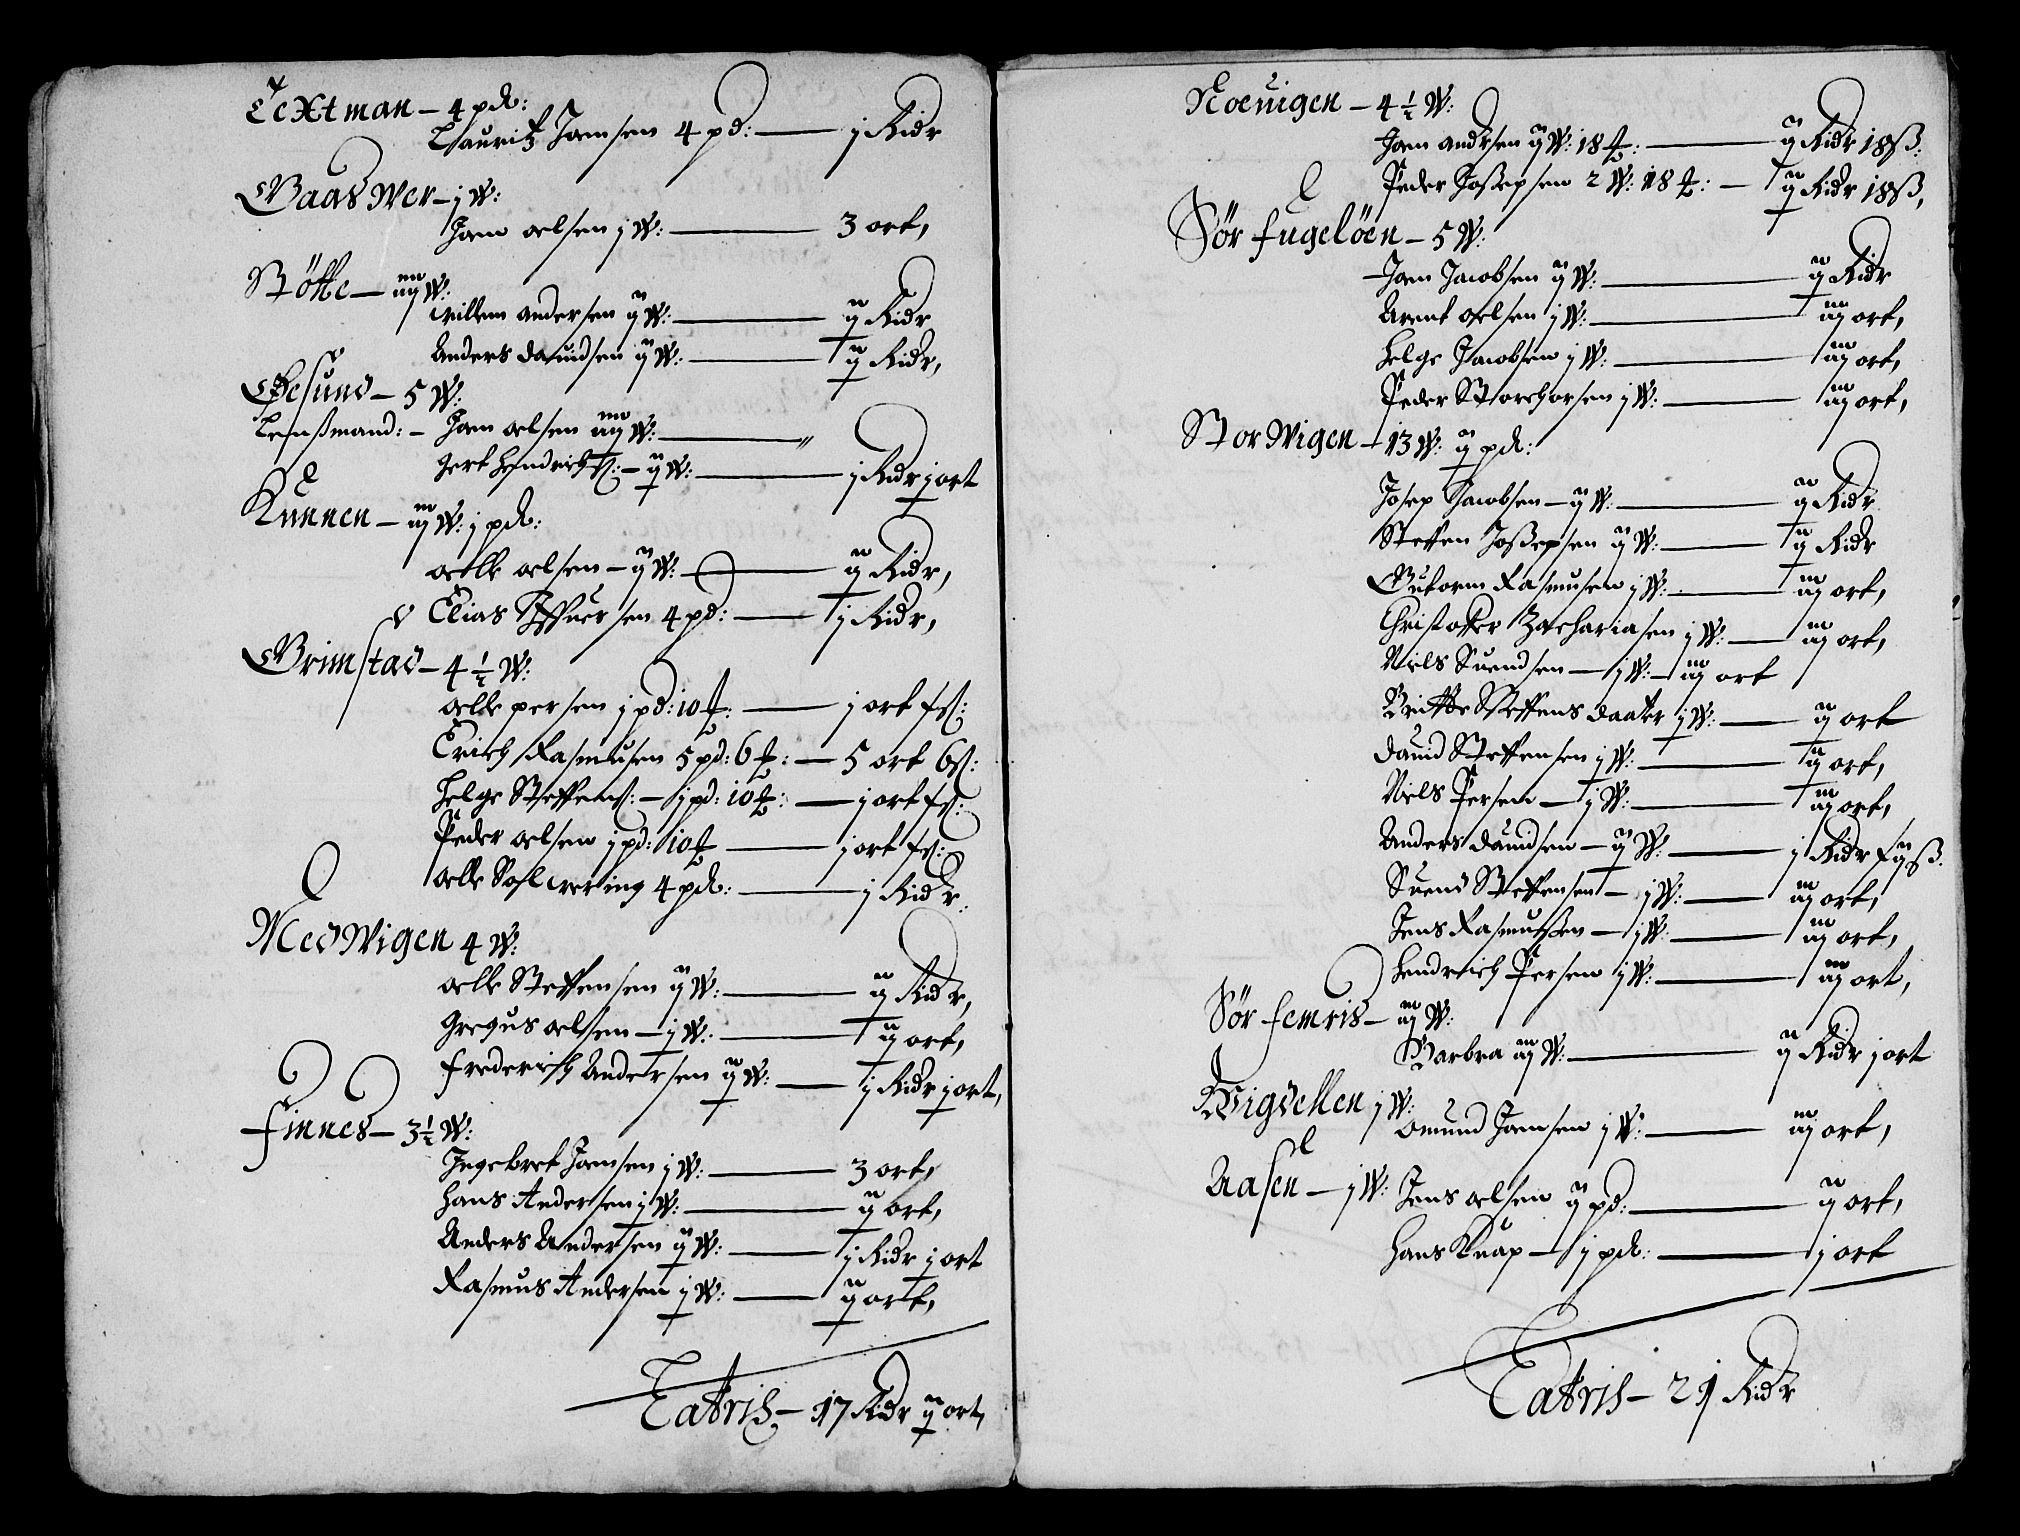 Textman – 4 pd:
Lauritz Jonsen 4 pd: — j Ridr
Baaswer – j W:
Jon oelsen j W: — 3 ort,
Støtte – iiij W:
willem andersen ij W: — ij Ridr
Anders dauidsen ij W: — ij Ridr,
Øesund – 5 W:
Lensßmand: – Jon oelsen iiij W: — "
gert hendrichs: – ij W: — j Ridr j ort
Kunnen – iij W: j pd:
oelle oelsen – ij W: — ij Ridr,
Elias Iffuersen 4 pd: — j Ridr,
Grimstad – 4 ½ W:
oelle persen j pd: 10 — j ort
Erich Rasmusen 5 pd: 6 — 5 ort 6 s:
helge Steffens: – j pd: 10 — j ort
Peder oelsen j pd: 10 — j ort
oelle 4 pd: — j Ridr:
Medwigen 4 W:
oelle Steffensen ij W: — ij Ridr,
gregus oelsen – j W: — ij ort,
frederich Andersen ij W: — j Ridr j ort,
Finnes – 3 ½ W:
Ingebret Jonsen j W: — 3 ort,
hans Andersen j W: — ij ort,
Anders Andersen ij W: — j Ridr j ort
Rasmus Andersen j W: — ij ort,
Latris – 17 Ridr ij ort,
Noeuigen – 4 ½ W:
Jon andrsen ij W: 18 — ij Ridr 18 ß:
Peder Joßepsen 2 W: 18 — ij Ridr 18 ß,
Sør fugeløen – 5 W:
Jon Jacobsen ij W: — ij Ridr
Arent oelsen j W: — iij ort,
helge Jacobsen j W: — iij ort,
Peder j W: — iij ort,
Stor Wigen – 13 W: ij pd:
Josep Jacobsen – ij W: — ij Ridr
Steffen Joßepsen ij W: — ij Ridr
Gutorm Rasmusen j W: — iij ort,
Christoffer Zachariasen j W: — iij ort,
Niels Suendsen – j W: – iij ort
Britte Steffens daater j W: — ij ort
dauid Steffensen j W: — ij ort,
Niels Persen – j W: — iij ort,
Anders dauidsen – ij W: — j Ridr ß.
Suend Steffensen – j W: — iij ort,
Jens Rasmußen – j W: — iij ort,
hendrich Persen j W: — iij ort,
Sør femris – iij W:
Barbra iij W: — ij Ridr j ort
Wigdellen j W:
omund Jonsen j W: — iij ort,
Aasen – j W: Jens oelsen ij pd: — ij ort,
hans Knap – j pd: — j ort
Latris – 21 Ridr